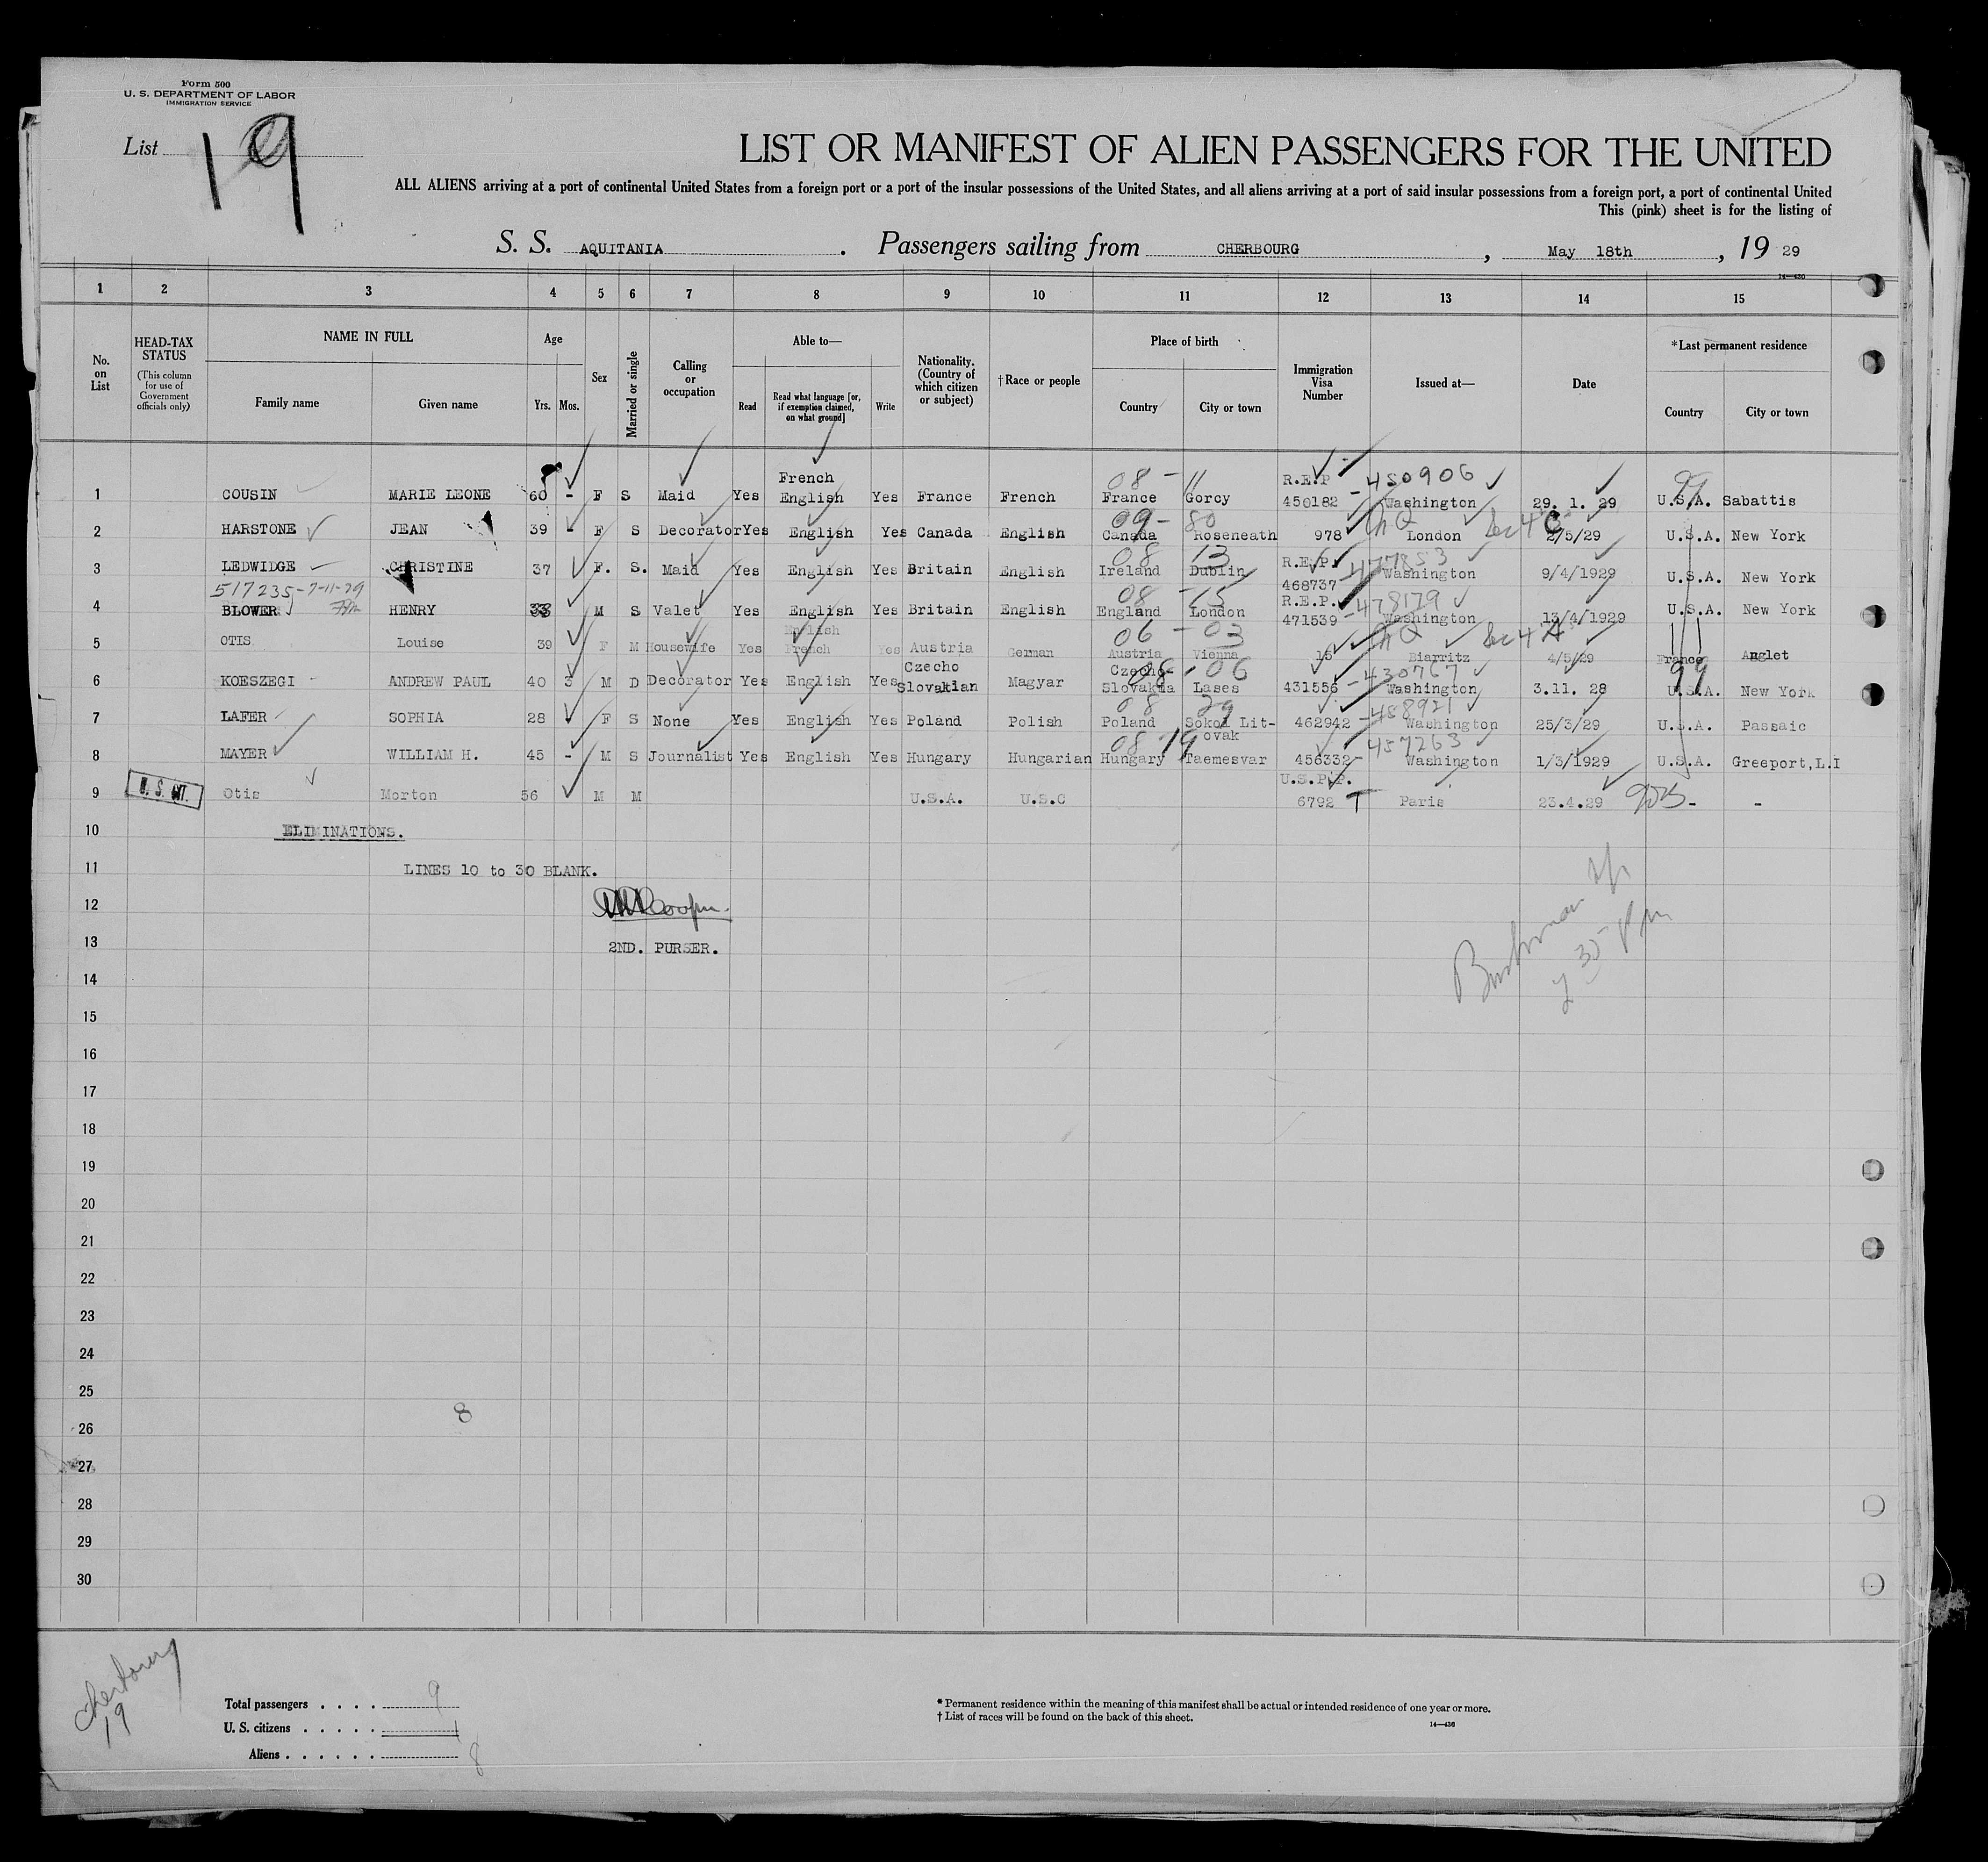 Form 500
U. S. DEPARTMENT OF LABOR
IMMIGRATION SERVICE
List 19
LIST OR MANIFEST OF ALIEN PASSENGERS FOR THE UNITED
ALL ALIENS arriving at a port of continental United States from a foreign port or a port of the insular possessions of the United States, and all aliens arriving at a port of said insular possessions from a foreign port, a port of continental United
This (pink) sheet is for the listing of
S. S. AQUITANIA. Passengers sailing from CHERBOURG, May 18th, 19 29
14—430
1 2 3 4 5 6 7 8 9 10 11 12 13 14 15
No. on List
HEAD-TAX STATUS (This column for use of Government officials only)
NAME IN FULL Family name Given name
Age Yrs. Mos.
Sex
Married or single
Calling or occupation
Able to— Read Read what language [or, if exemption claimed, on what ground] Write
Nationality. (Country of which citizen or subject)
† Race or people
Place of birth Country City or town
Immigration Visa Number
Issued at—
Date
*Last permanent residence Country City or town
French R.E.P 08 - 11 -450906 99
1 COUSIN MARIE LEONE 60 - F S Maid Yes English Yes France French France Gorcy 450182 Washington 29. 1. 29 U.S.A. Sabattis
09 - 80
2 HARSTONE JEAN 39 - F S Decorator Yes English Yes Canada English Canada Roseneath 978 London 2/5/29 U.S.A. New York
08 13 R.E.P. -477853
3 LEDWIDGE CHRISTINE 37 F. S. Maid Yes English Yes Britain English Ireland Dublin 468737 Washington 9/4/1929 U.S.A. New York
517235-7-11-29 08 - 15 R.E.P. -478179
4 BLOWER HENRY 33 M S Valet Yes English Yes Britain English England London 471539 Washington 13/4/1929 U.S.A. New York
English 06 - 03
5 OTIS Louise 39 F M Housewife Yes French Yes Austria German Austria Vienna 16 Biarritz 4/5/29 France Anglet
Czecho Czecho 08 - 06 -430767 99
6 KOESZEGI ANDREW PAUL 40 3 M D Decorator Yes English Yes Slovakian Magyar Slovakia Lases 431556 Washington 3.11. 28 U.S.A. New York
08 29 -458921
7 LAFER SOPHIA 28 F S None Yes English Yes Poland Polish Poland Sokol Lit- 462942 Washington 25/3/29 U.S.A. Passaic
ovak
08 19 457263
8 MAYER WILLIAM H. 45 - M S Journalist Yes English Yes Hungary Hungarian Hungary Taemesvar 456332 Washington 1/3/1929 U.S.A. Greeport,L.I
U.S.P.P.
9 Otis Morton 56 M M U.S.A. U.S.C 6792 T Paris 23.4.29 - -
10 ELIMINATIONS.
11 LINES 10 to 30 BLANK.
12
13 2ND. PURSER.
14
15
16
17
18
19
20
21
22
23
24
25
8
26
27
28
29
30
Cherbourg
19
Total passengers . . . . 9
U. S. citizens . . . . . 1
Aliens . . . . . . 8
* Permanent residence within the meaning of this manifest shall be actual or intended residence of one year or more.
† List of races will be found on the back of this sheet.
14—430